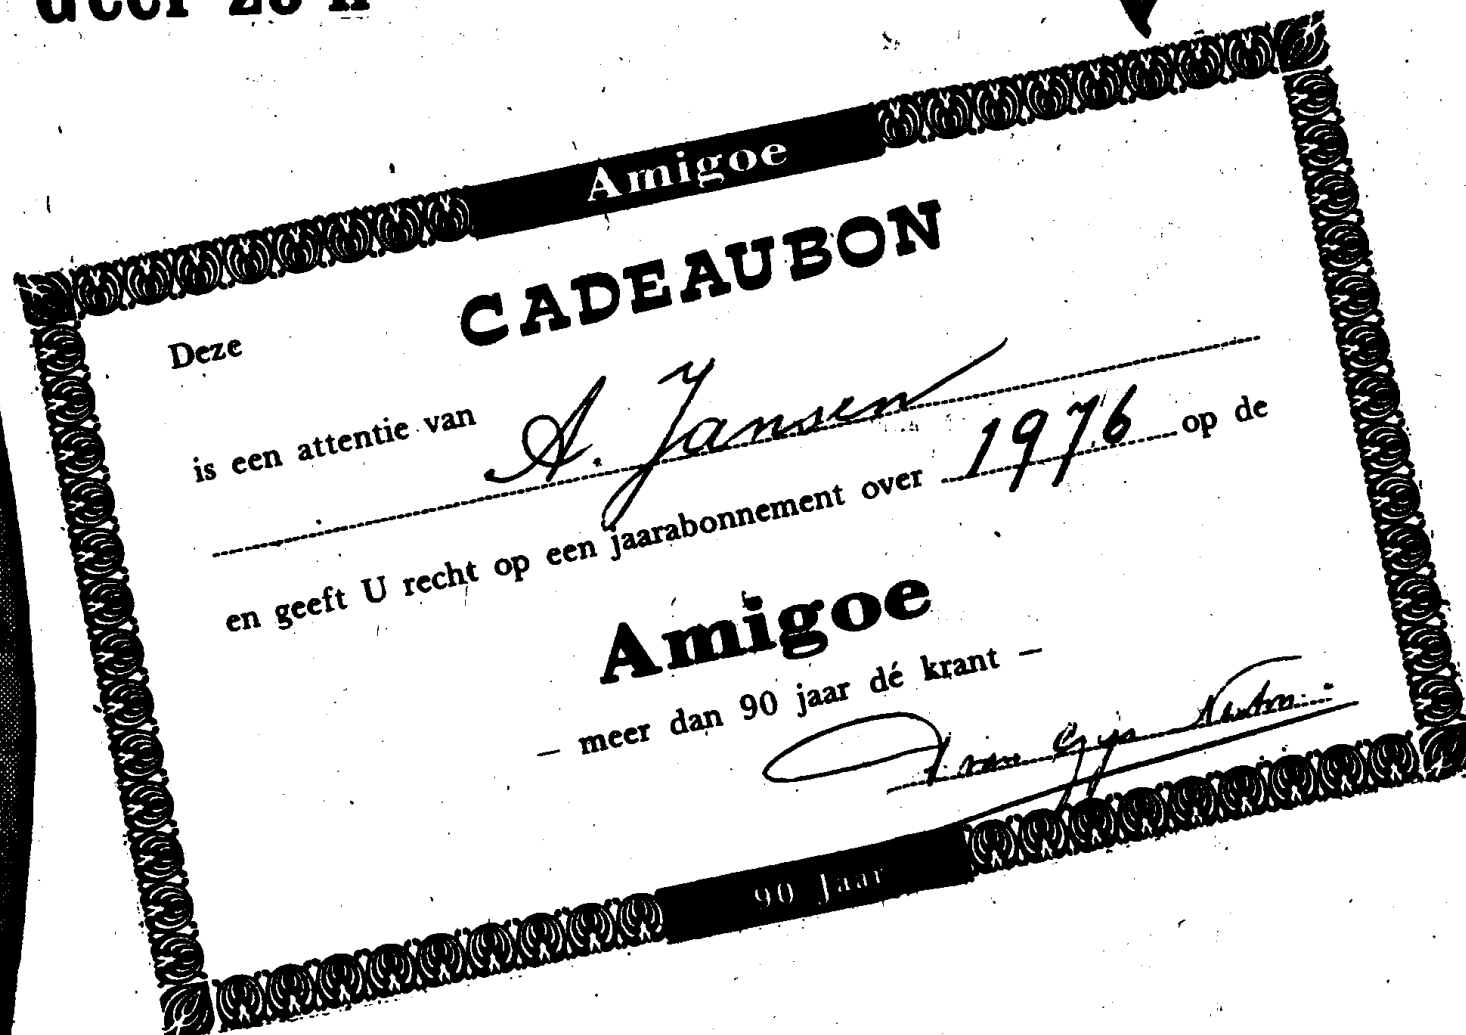 zo'n
Amigoe
CADEAUBON
Deze
is een attentie van A. Jansen
en geeft U recht op een jaarabonnement over 1976 op de
Amigoe
— meer dan 90 jaar dé krant —
90 Jaar